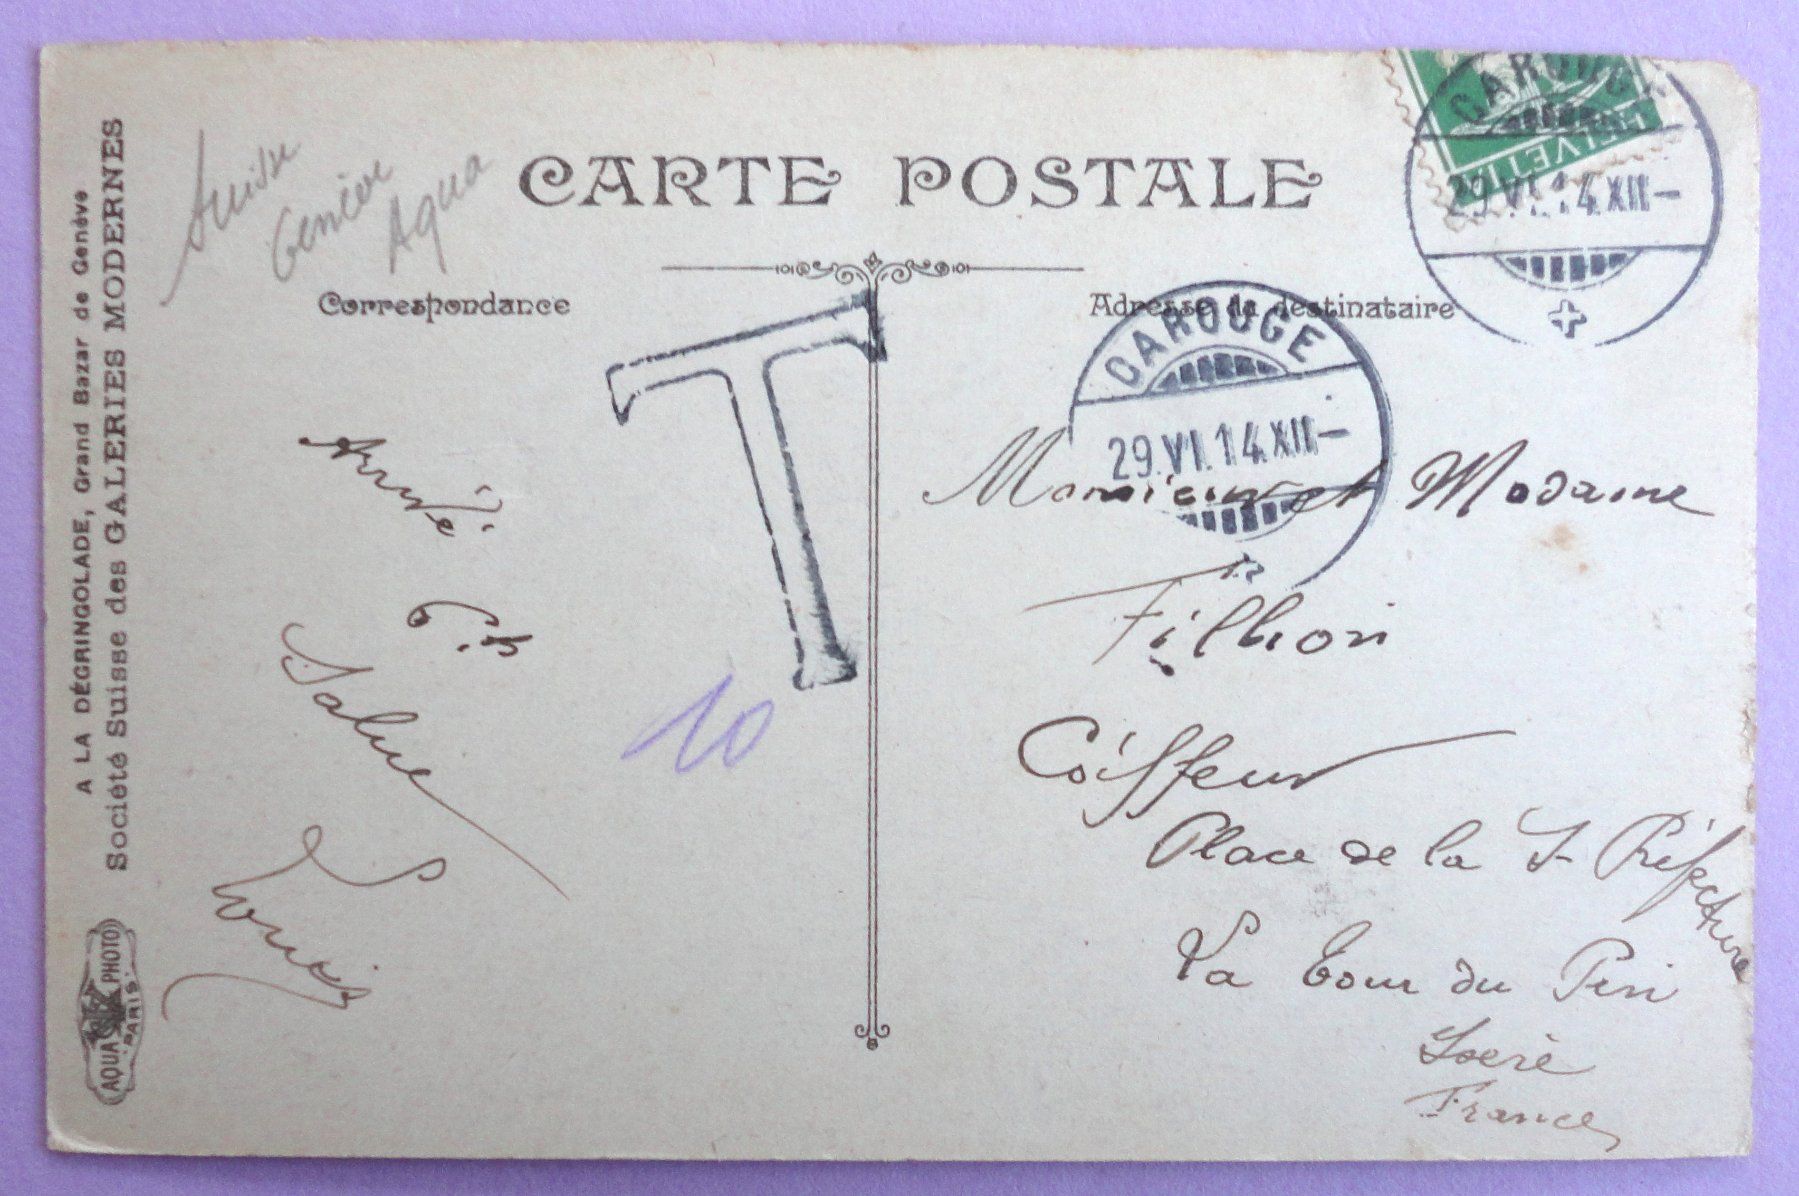 CARTE POSTALE
Correspondance
Adresse du destinataire
A LA DÉGRINGOLADE, Grand Bazar de Genève
Société Suisse des GALERIES MODERNES
AQUA PHOTO
PARIS
Suisse
Genève
Aqua
HELVETIA
CAROUGE
29.VI.14.XII–
CAROUGE
29.VI.14.XII–
T
10
Louis
Monsieur et Madame
Fillion
Coiffeur
Place de la S- Préfecture
La Tour du Pin
Isère
France